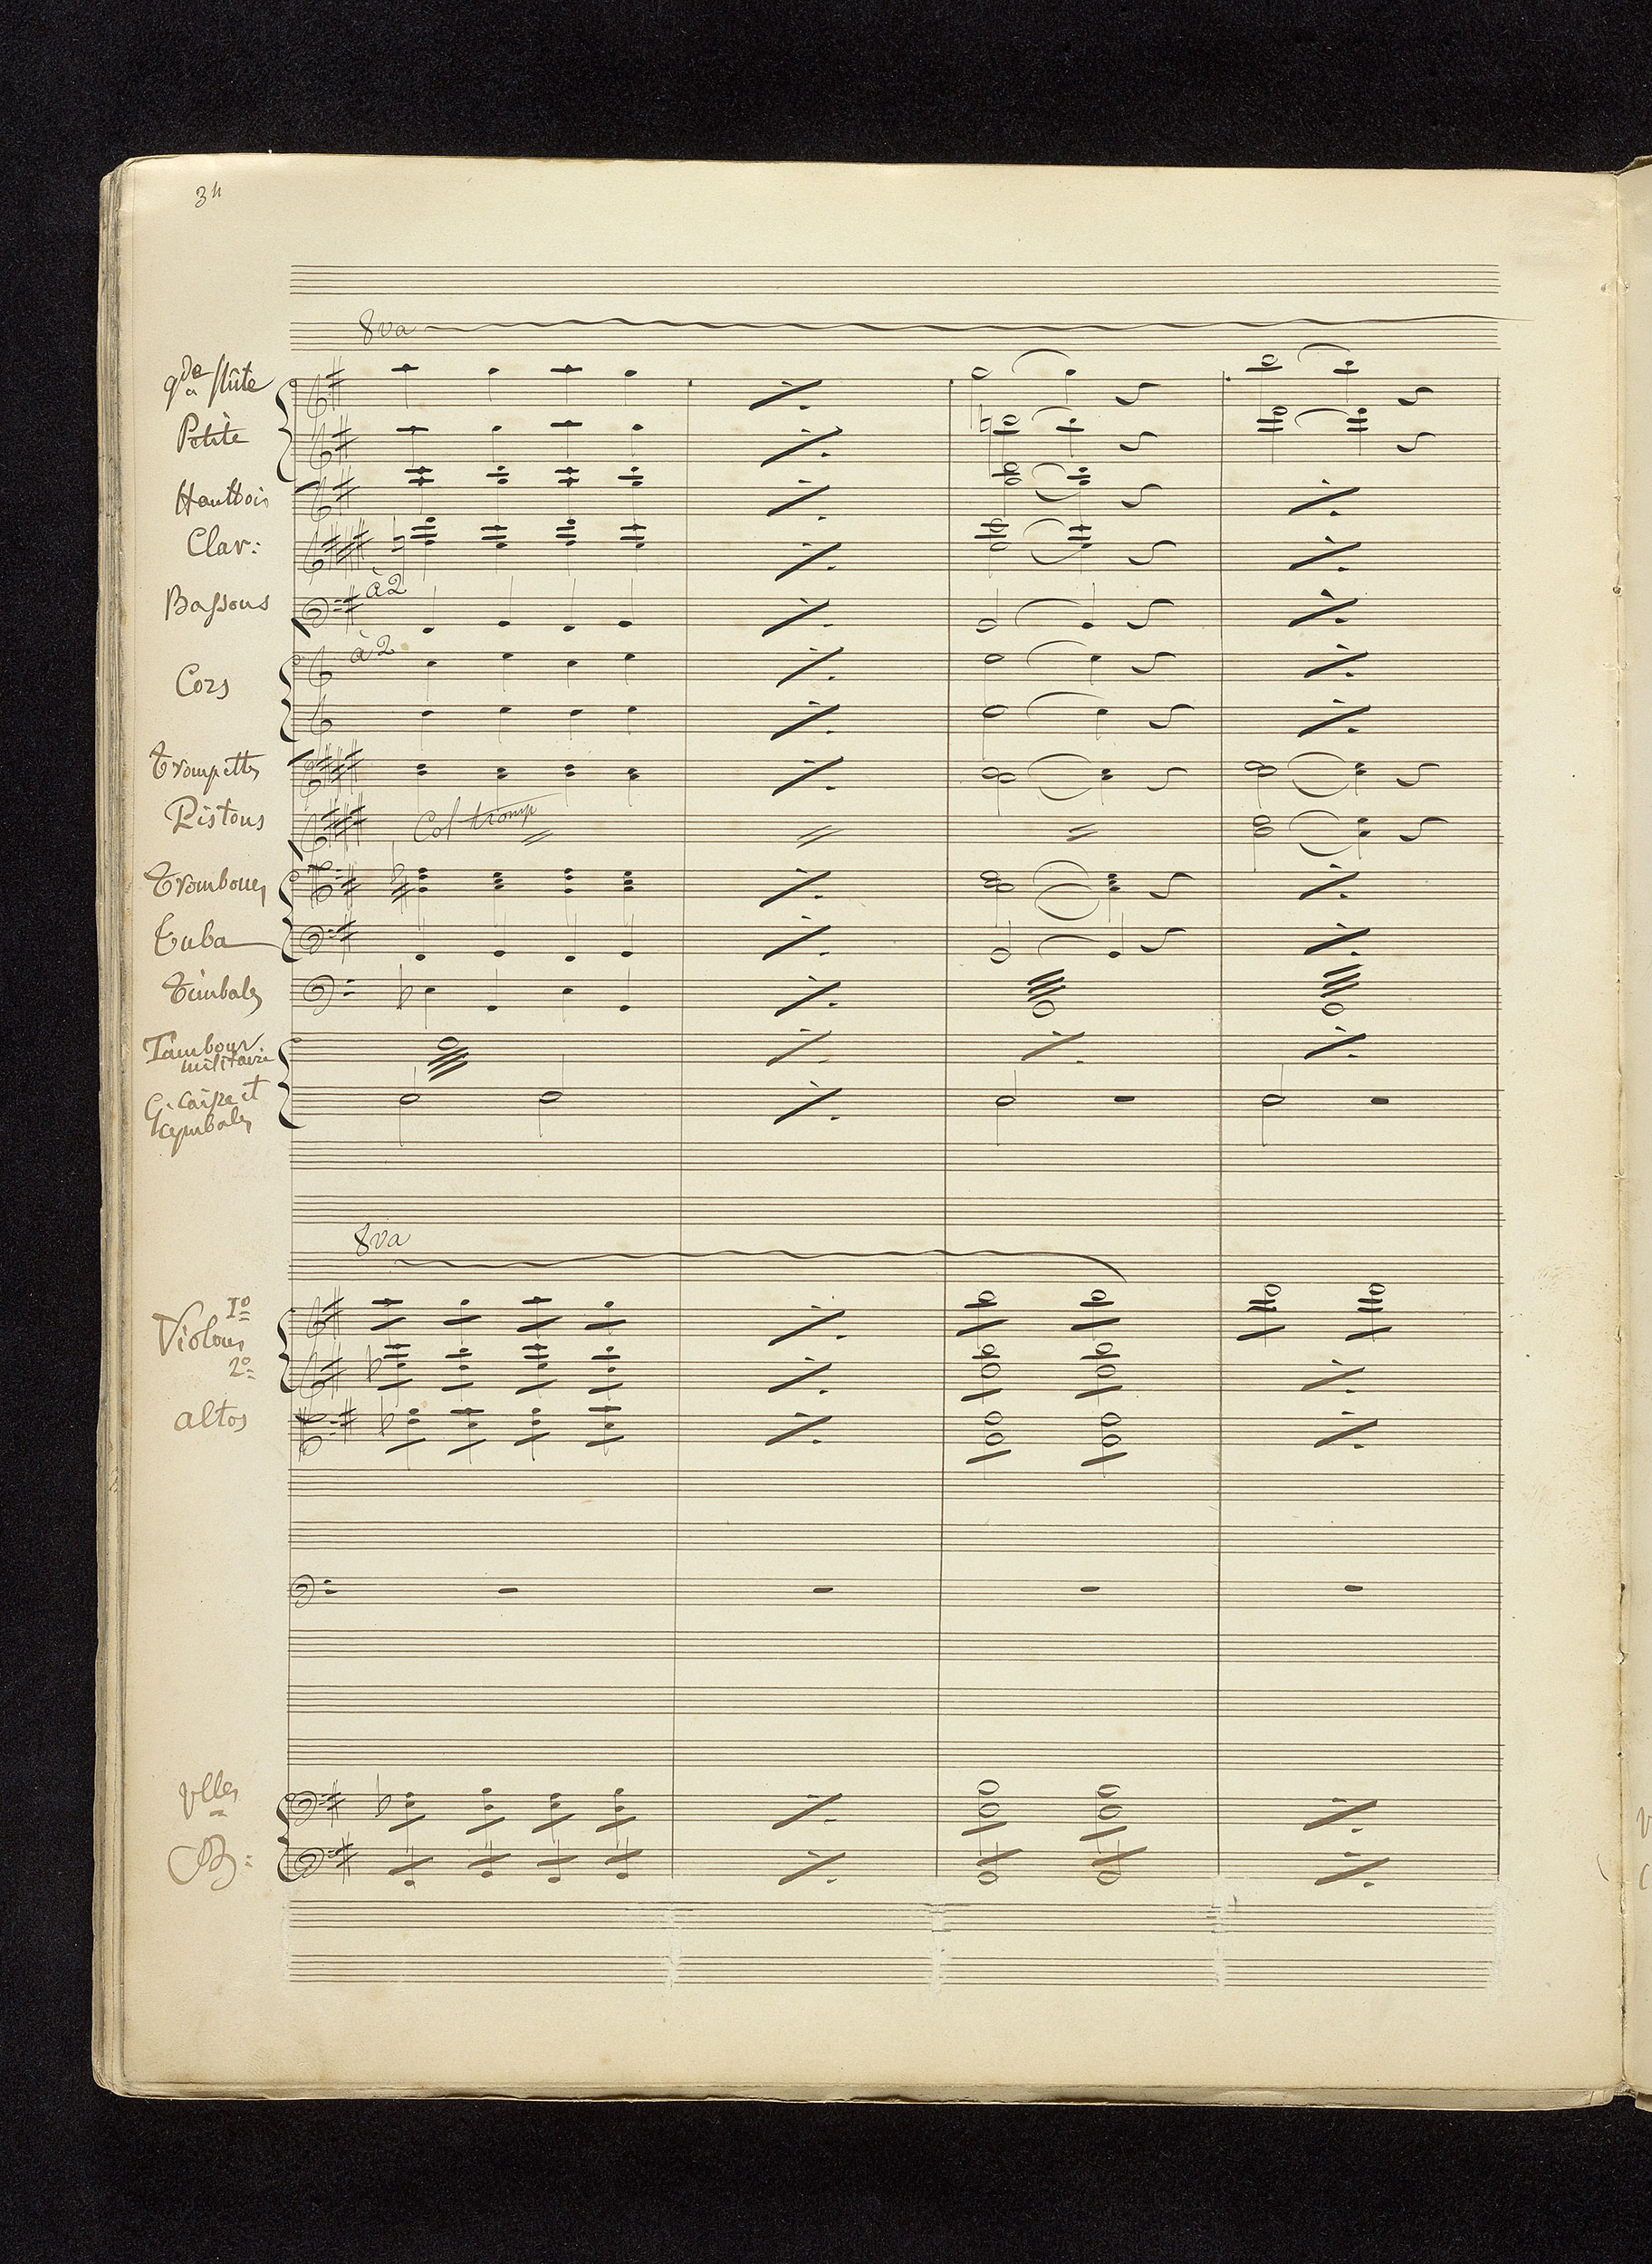 34
8va
gde flûte
Petite
Hautbois
Clar:
à 2
Bassons
à 2
Cors
Trompettes
Pistons
Col tromp
Trombones
Tuba
Timbales
Tambour
militaire
G. caisse et
cymbales
8va
Violons
1o
2o
altos
vlles
CB: